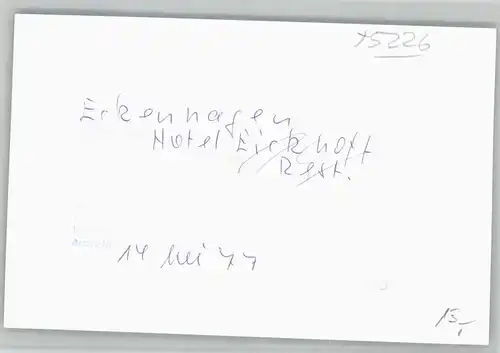 75226
Eckenhagen
Hotel Eickhoff
Rest.
14 Mei 77
13,-